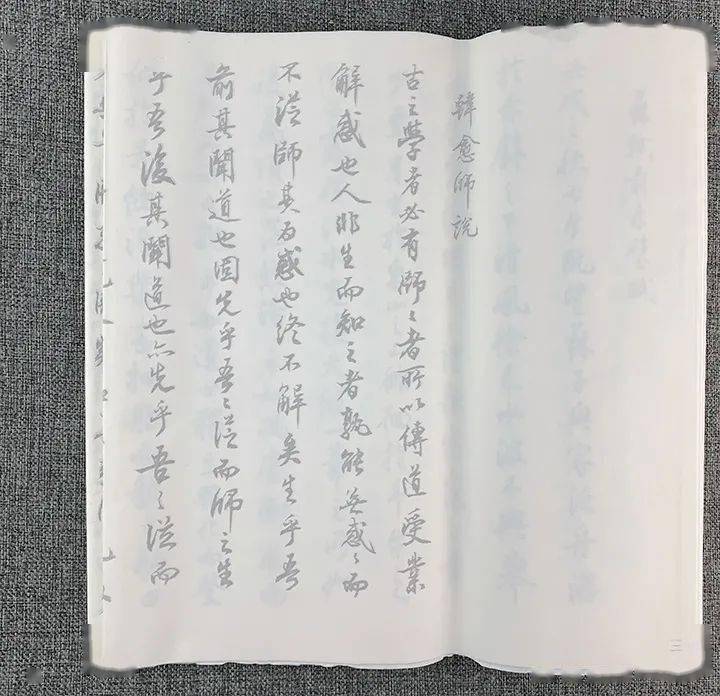 韓愈師説
古之學者必有師〻者所以傳道受業
解惑也人非生而知之者孰能無惑〻而
不從師其為惑也終不解矣生乎吾
前其聞道也固先乎吾〻從而師之生
乎吾後其聞道也亦先乎吾〻從而
三